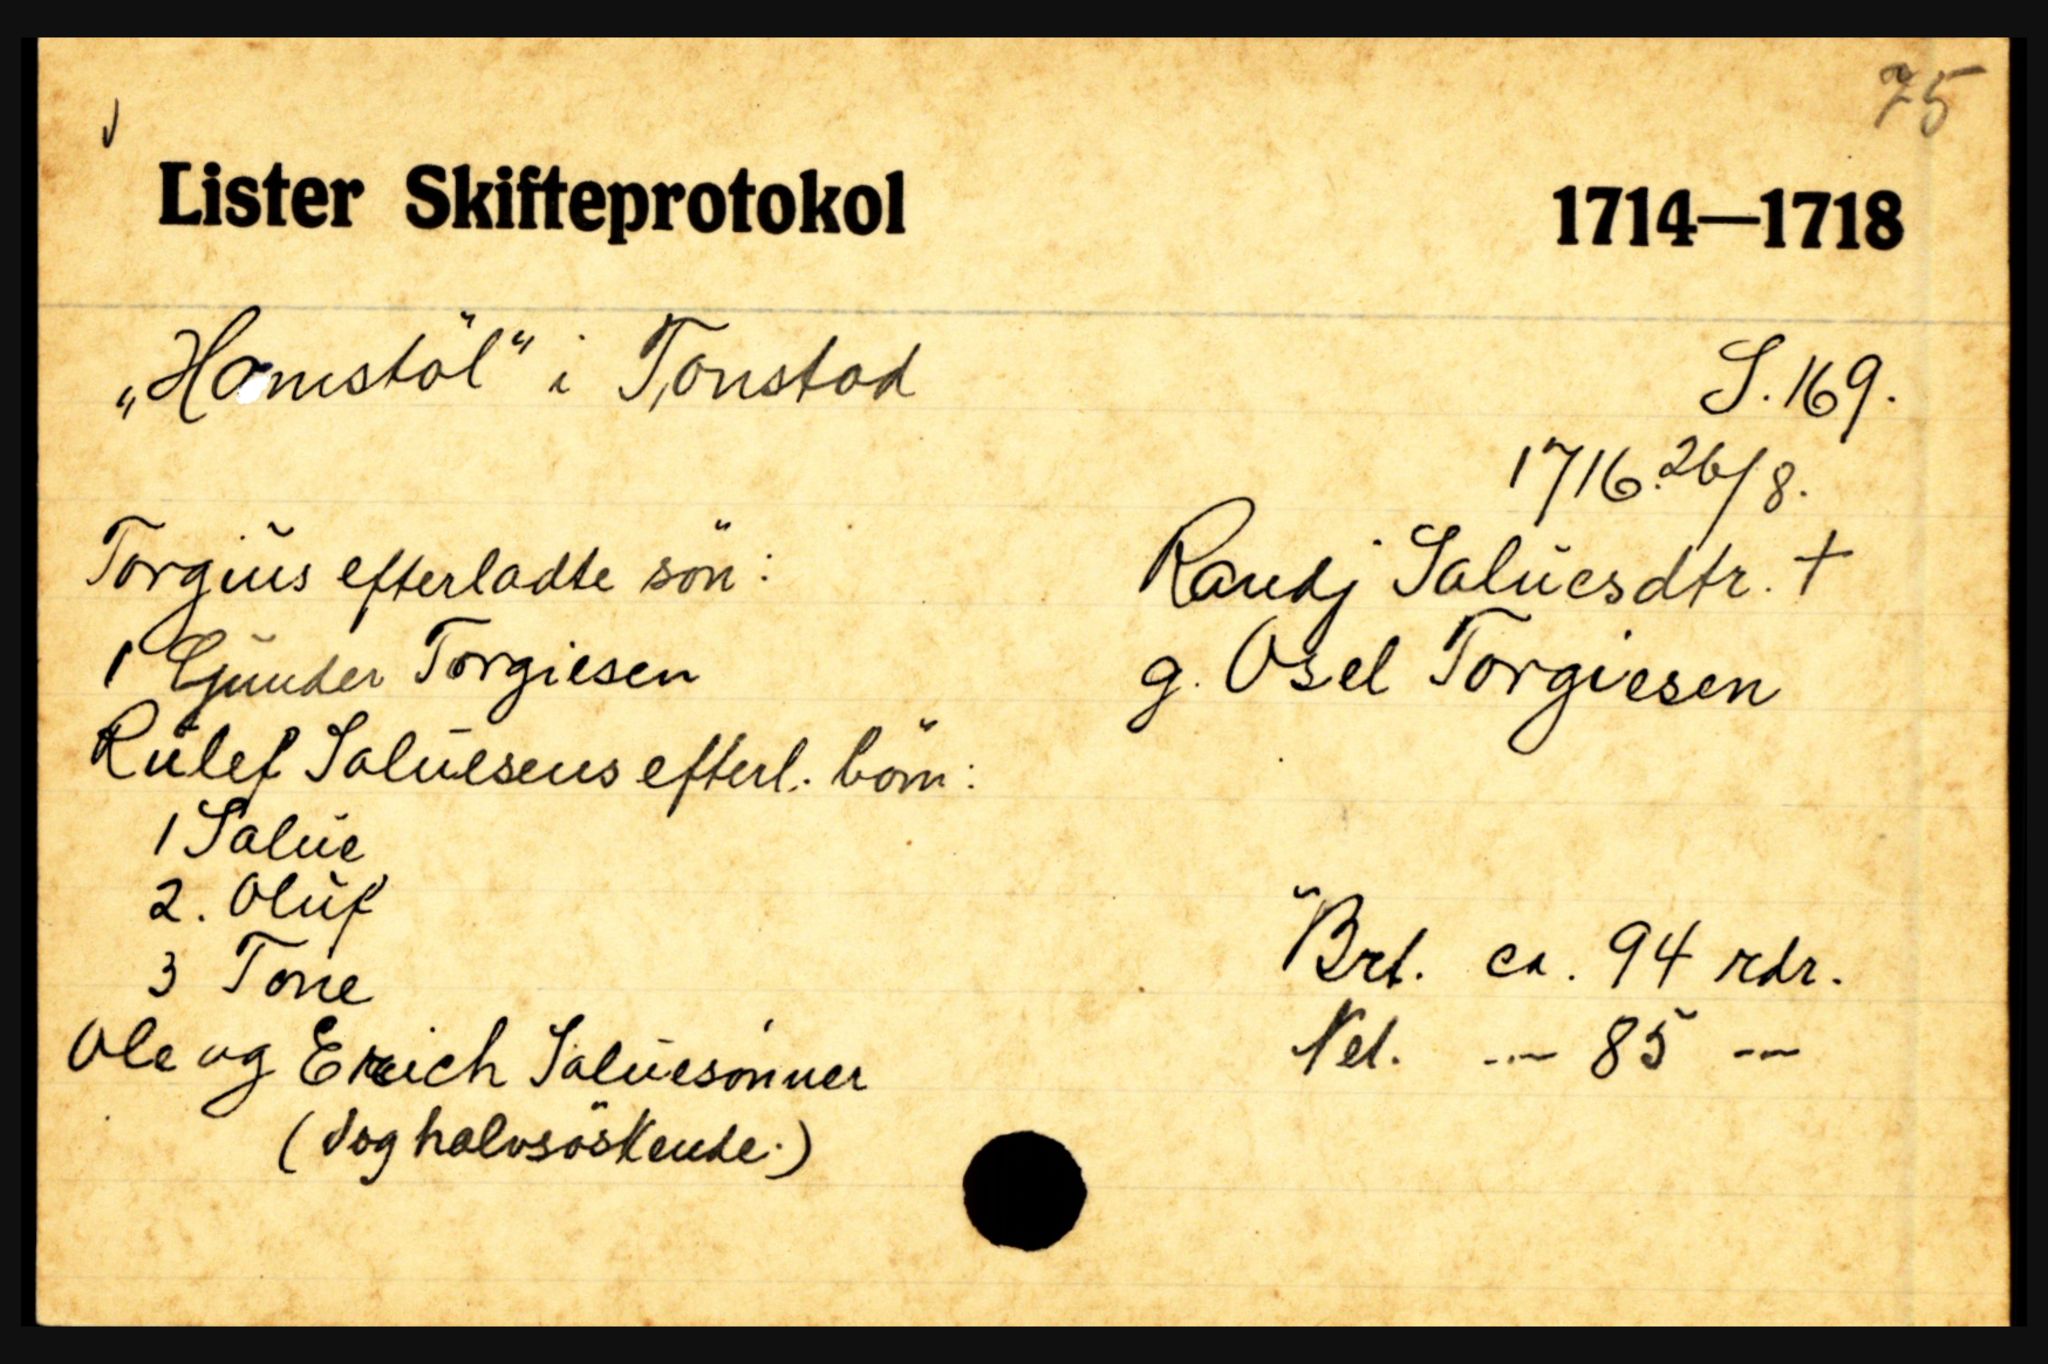 75
Lister Skifteprotokol 1714—1718
„Homstöl“ i Tonstad
S. 169.
1716. 26/8.
Torgius efterladte sön: Randj Saluesdtr. +
1 Gunder Torgiesen g. Osel Torgiesen
Rulef Saluesens efterl. börn:
1 Salue
2. Oluf
3 Tone
Brt. ca. 94 rdr.
Ole og Erich Saluesönner
Net. -- 85 --
( og halvsöskende.)